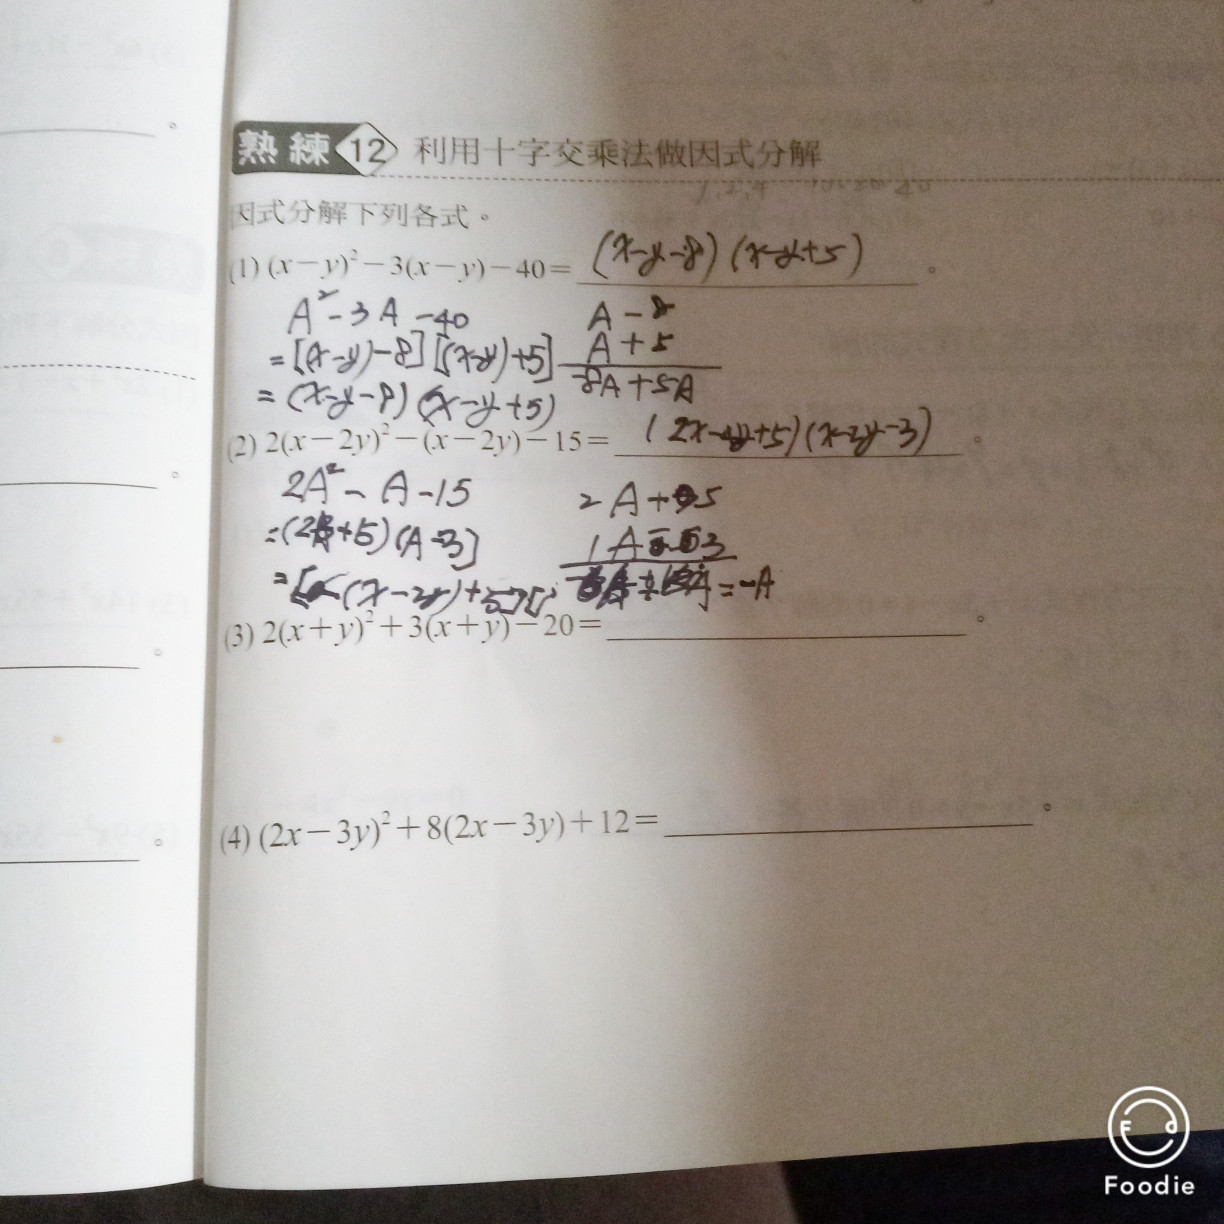 熟練 12 利用十字交乘法做因式分解
因式分解下列各式。
(1) (x－y)²－3(x－y)－40＝ (x-y-8) (x-y+5) 。
A²-3A-40 A-8
=[(x-y)-8][(x-y)+5] A+5
=(x-y-8)(x-y+5) -8A+5A
(2) 2(x－2y)²－(x－2y)－15＝ (2x-4y+5)(x-2y-3) 。
2A²-A-15 2A+5
=(2A+5)(A-3) 1A-3
(x-2y)+5 =-A
(3) 2(x＋y)²＋3(x＋y)－20＝ 。
(4) (2x－3y)²＋8(2x－3y)＋12＝ 。
Foodie